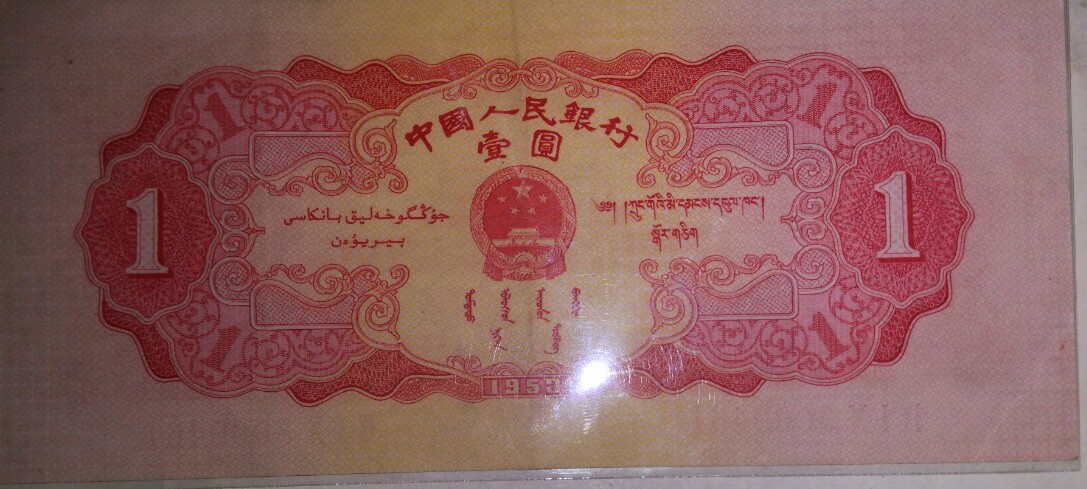 中國人民銀行
壹圓
1
جۇڭگوخەلىق بانكاسى
بىريۇەن
༄༅། །ཀྲུང་གོའི་མི་དམངས་དངུལ་ཁང་།
སྒོར་གཅིག
1
1953